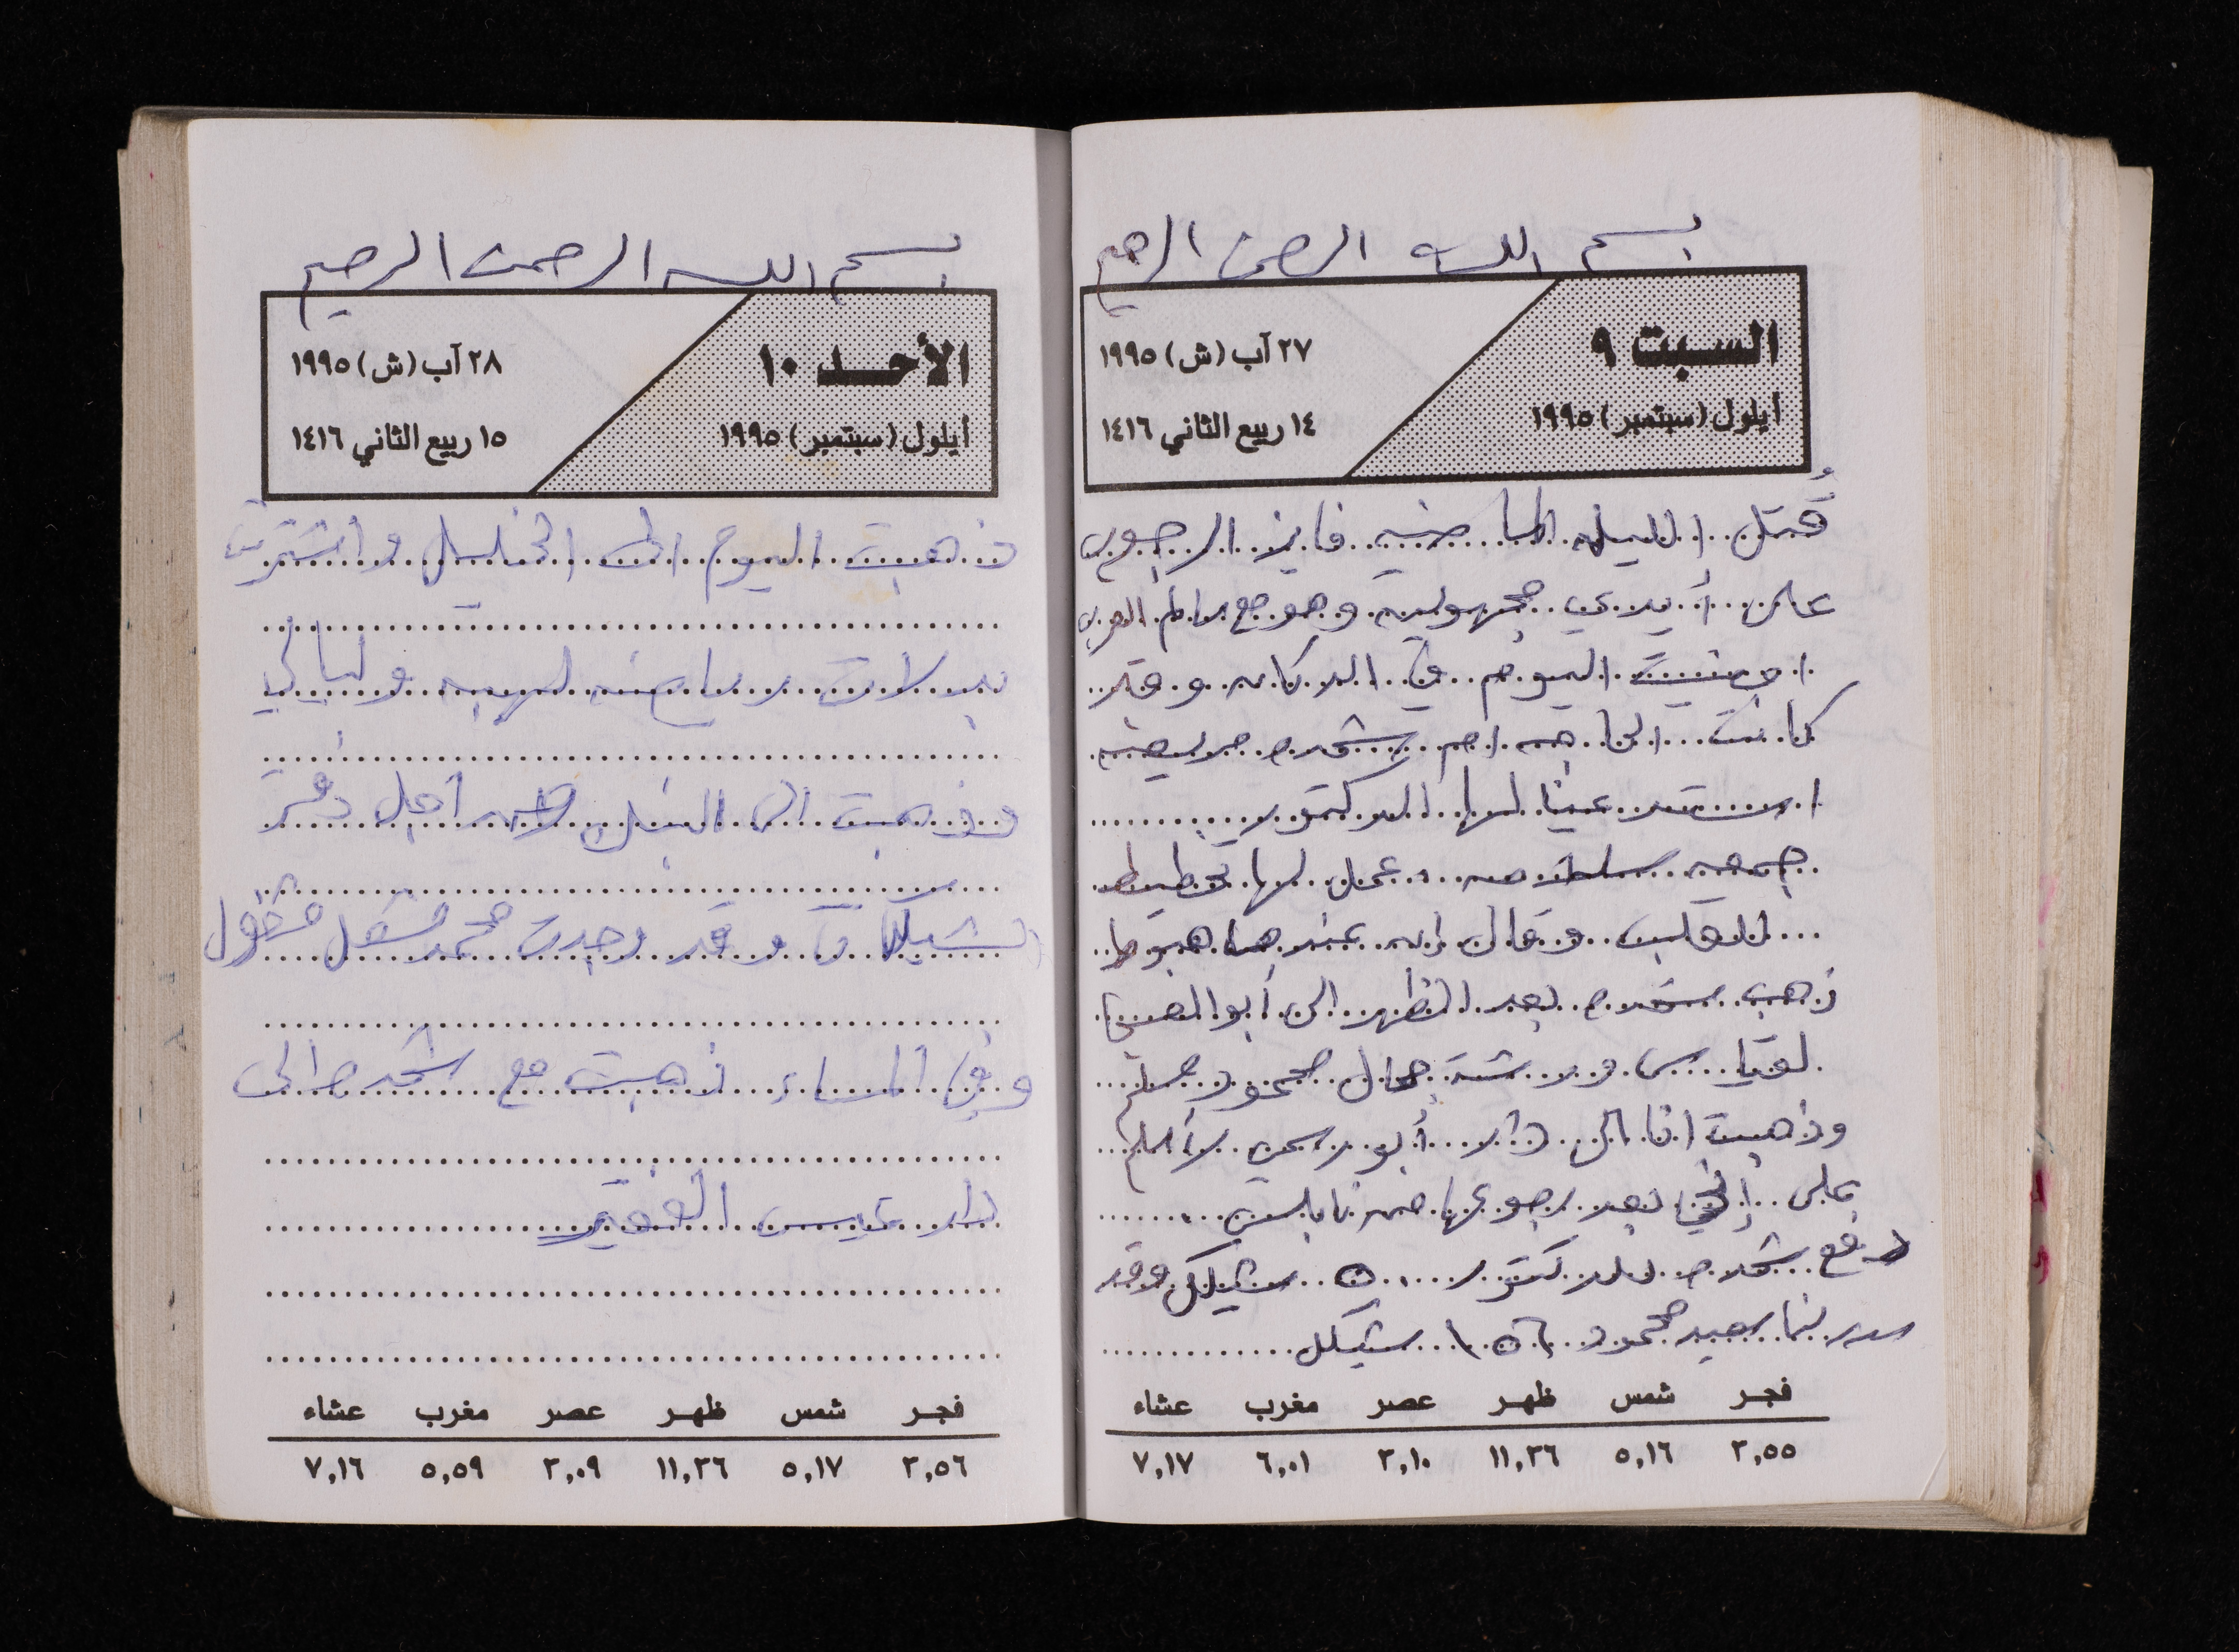 بسم الله الرحمن الرحيم
السبت ٩
أيلول (سبتمبر) ١٩٩٥
٢٧ آب (ش) ١٩٩٥
١٤ ربيع الثاني ١٤١٦
قُتل الليله الماضيه فايز الرجوب
على أيدي مجهوليه وهو مع
امضيت اليوم في الدكانه وقد
كانت الحاجه ام شحده مريضه
استدعينا لها الدكتور
جمعه سلامه عمل لها تخطيط
للقلب وقال انه عندها هبوط
ذهب شحده بعد الظهر الى أبو
محمود مسلم
وذهبت انا الى دار أبو لأسلم
على بعد رجوعها من نابلس
دفع شحده للدكتور ٥٠ شيكل وقد
محمود ١٥٦ شيكل
فجر شمس ظهر عصر مغرب عشاء
٣,٥٥ ٥,١٦ ١١,٣٦ ٣,١٠ ٦,٠١ ٧,١٧
بسم الله الرحمن الرحيم
الأحد ١٠
أيلول (سبتمبر) ١٩٩٥
٢٨ آب (ش) ١٩٩٥
١٥ ربيع الثاني ١٤١٦
ذهبت اليوم الى الخليل واشتريت
بدلات رياضه
وذهبت الى البنك من اجل دفتر
الشيكات وقد وجدت محمد
وفي المساء ذهبت مع شحده الى
دار عيسى الفقير
فجر شمس ظهر عصر مغرب عشاء
٣,٥٦ ٥,١٧ ١١,٣٦ ٣,٠٩ ٥,٥٩ ٧,١٦